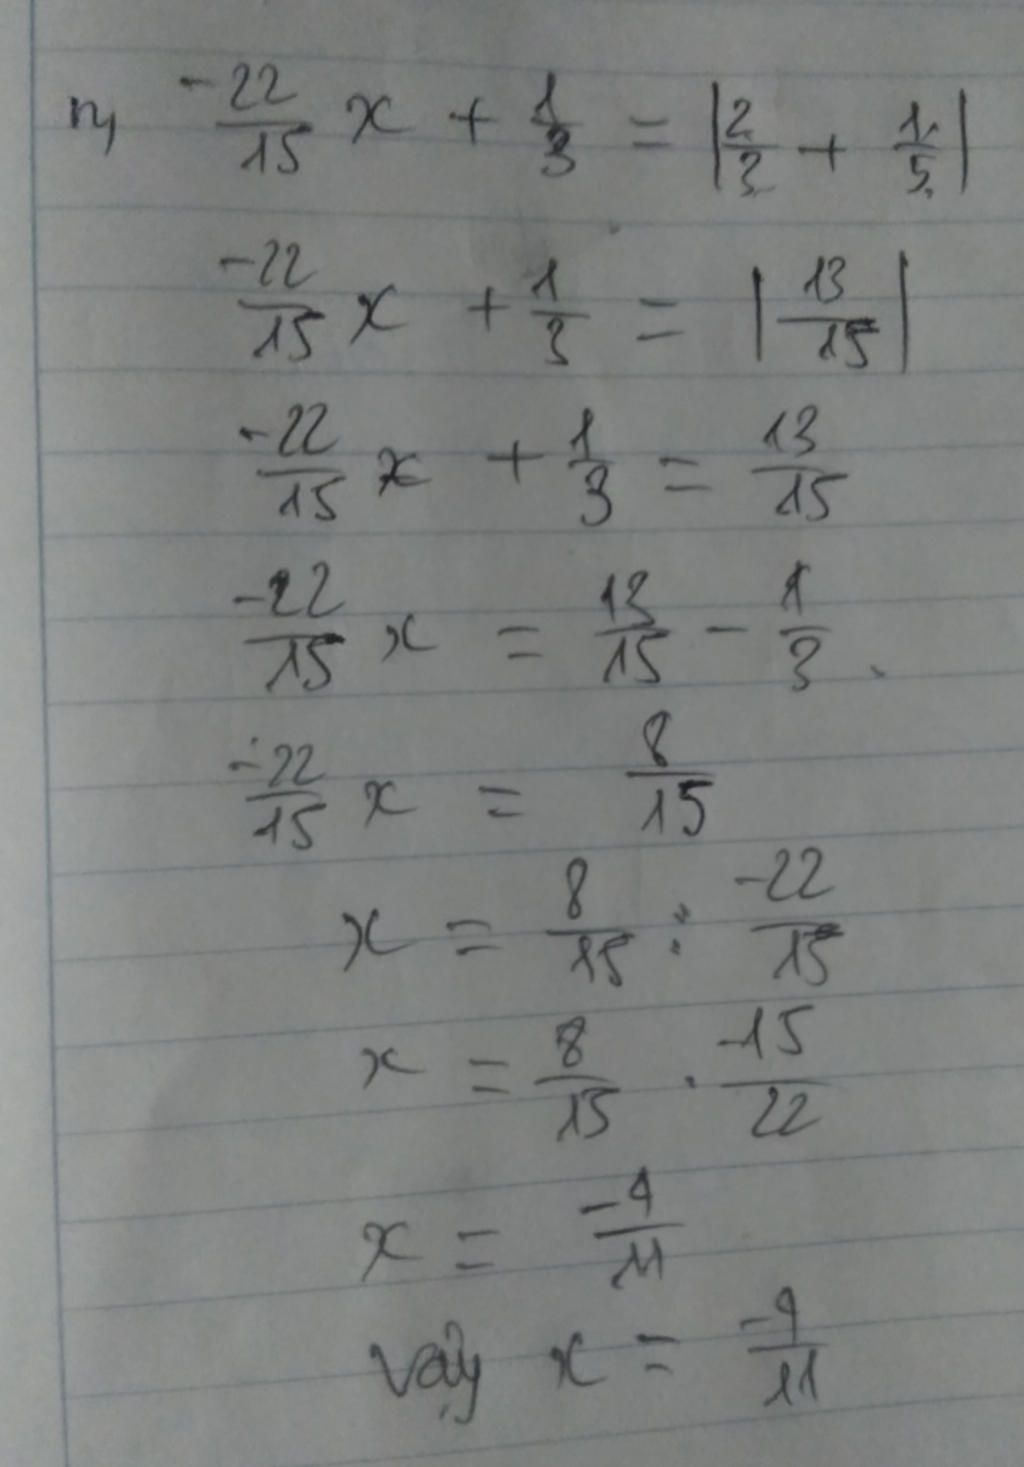 n, -22/15 x + 1/3 = |2/3 + 1/5|
-22/15 x + 1/3 = |13/15|
-22/15 x + 1/3 = 13/15
-22/15 x = 13/15 - 1/3
-22/15 x = 8/15
x = 8/15 : -22/15
x = 8/15 . -15/22
x = -4/11
Vậy x = -4/11